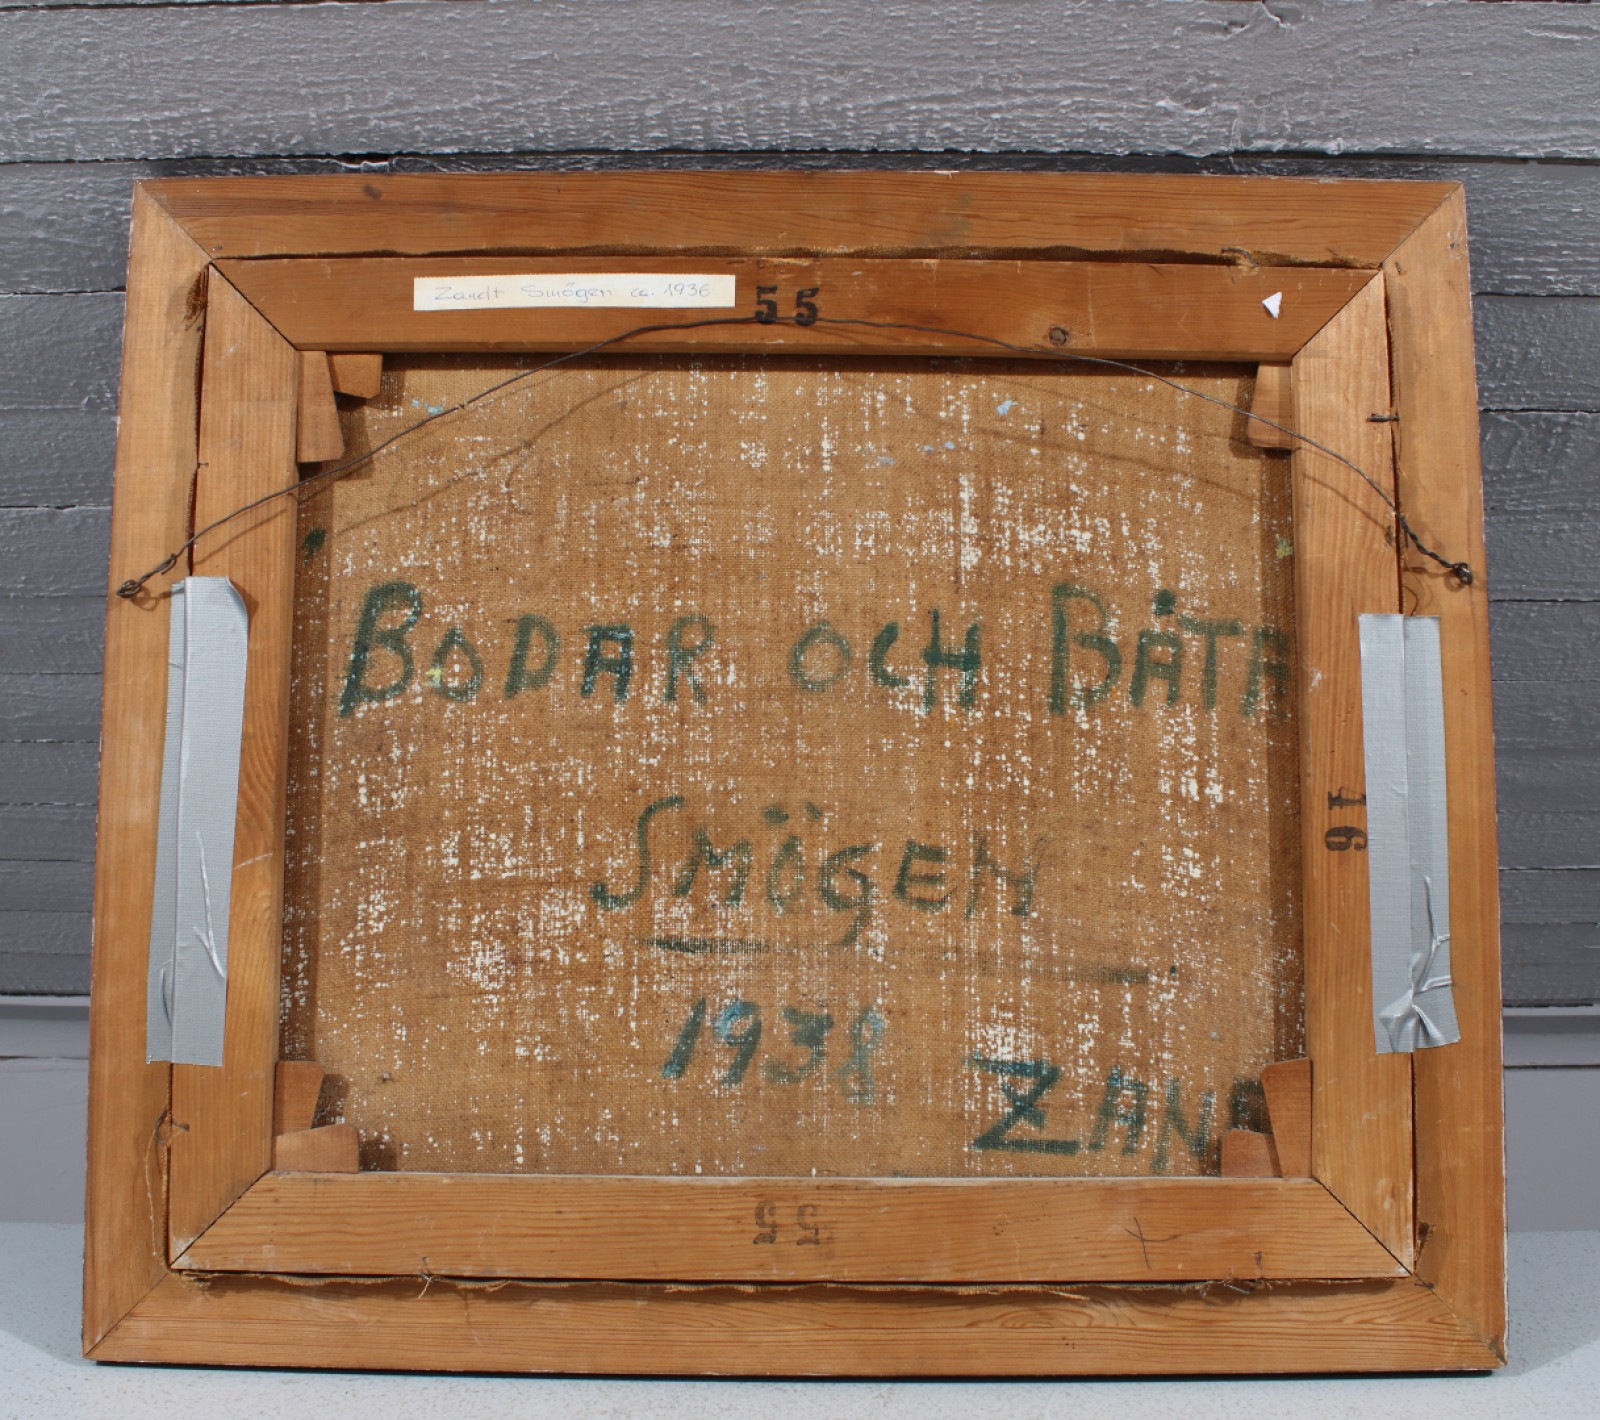 Zandt Smögen ca. 1936
55
BODAR OCH BÅTA
SMÖGEN
1938
ZAN
16
55